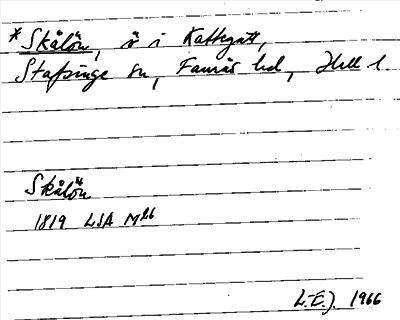 *Skålön, ö i Kattegatt,
Stafsinge sn, Faurås hd, Hall l.
Skålön
1819 LSA M26
L.-E.J. 1966